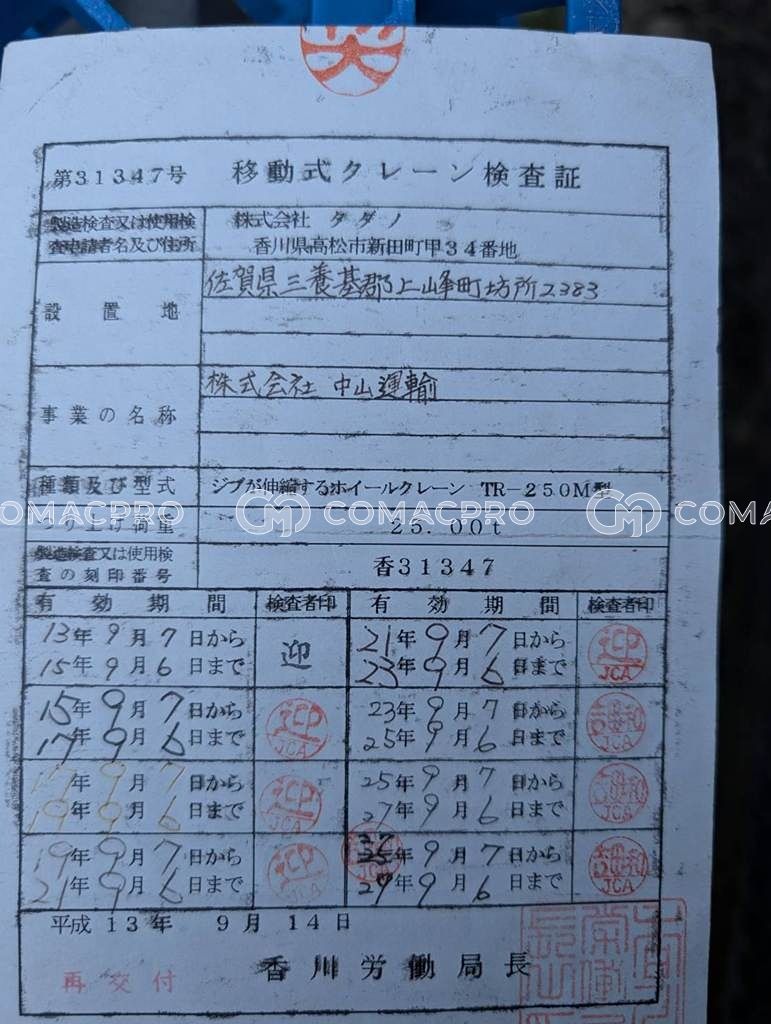 第31347号 移動式クレーン検査証
製造検査又は使用検
査申請者名及び住所
株式会社 タダノ
香川県高松市新田町甲34番地
設置地
佐賀県三養基郡上峰町坊所2383
事業の名称
株式会社 中山運輸
種類及び型式 ジブが伸縮するホイールクレーン TR-250M型
つり上げ荷重 25.00t
製造検査又は使用検
査の刻印番号
香31347
有効期間 検査者印 有効期間 検査者印
13年9月7日から
15年9月6日まで
迎
21年9月7日から
23年9月6日まで
迎
JCA
15年9月7日から
17年9月6日まで
迎
JCA
23年9月7日から
25年9月6日まで
JCA
17年9月7日から
19年9月6日まで
迎
JCA
25年9月7日から
27年9月6日まで
JCA
19年9月7日から
21年9月6日まで
迎
JCA
27
25年9月7日から
29年9月6日まで
JCA
平成13年 9月 14日
再交付 香川労働局長
COMACPRO COMACPRO COMACPRO